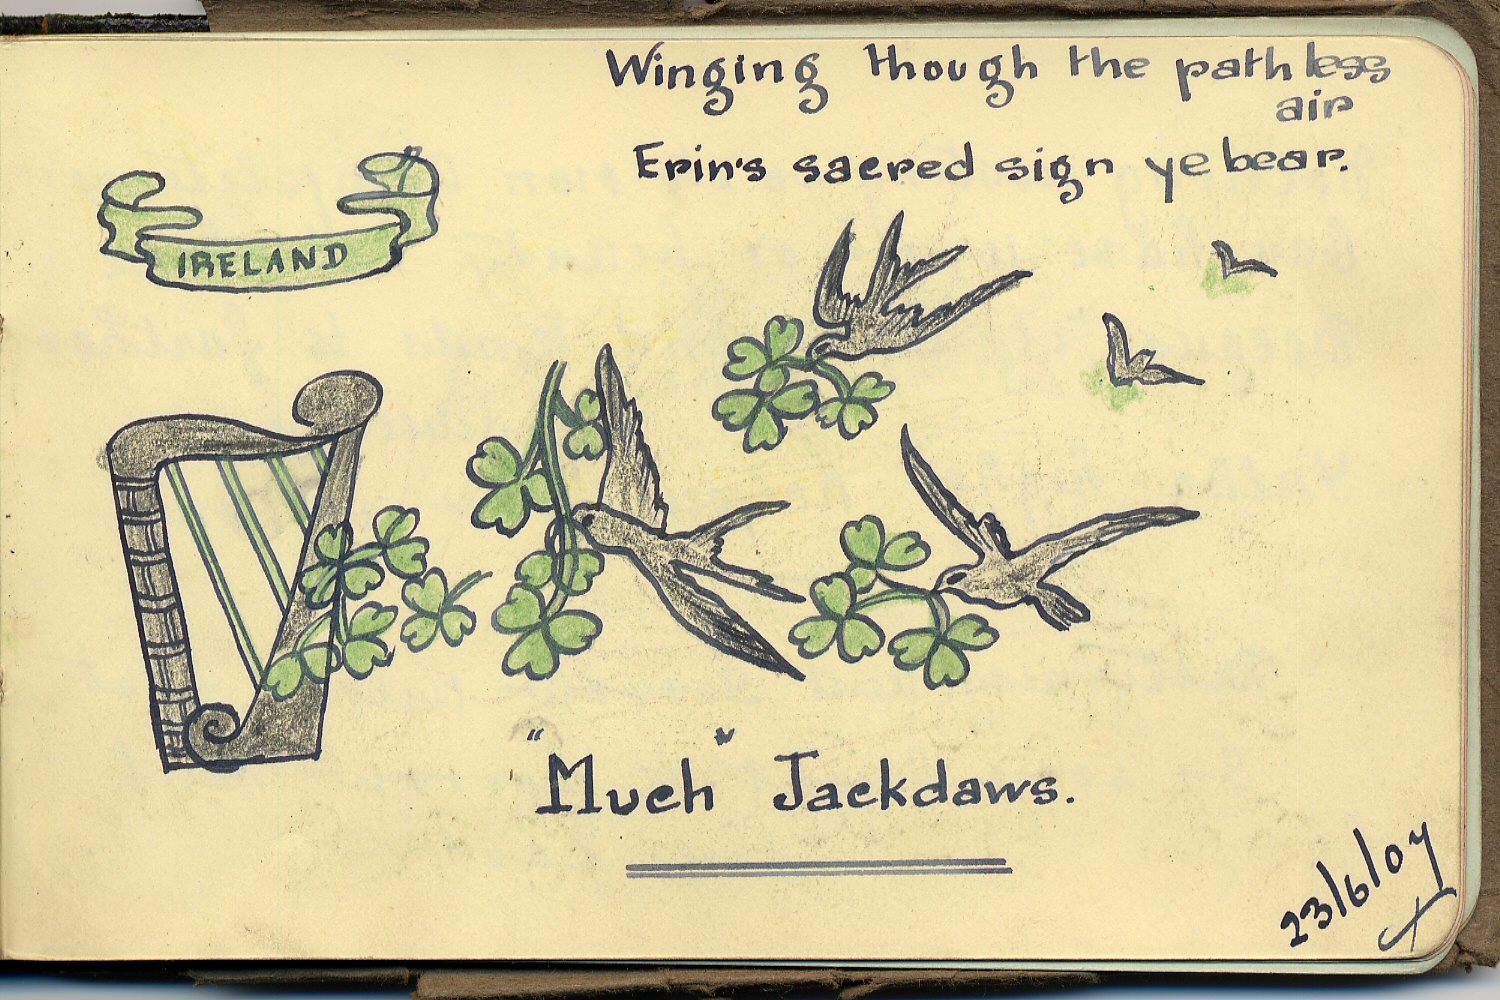 Winging though the pathless
air
Erin's sacred sign ye bear.
IRELAND
"Much" Jackdaws.
23/6/04